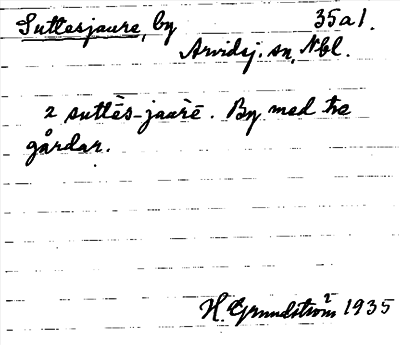 Suttesjaure, by 35a1.
Arvidsj. sn, Nbl.
2 suttēs-jaùrē. By med tre
gårdar.
H. Grundström 1935